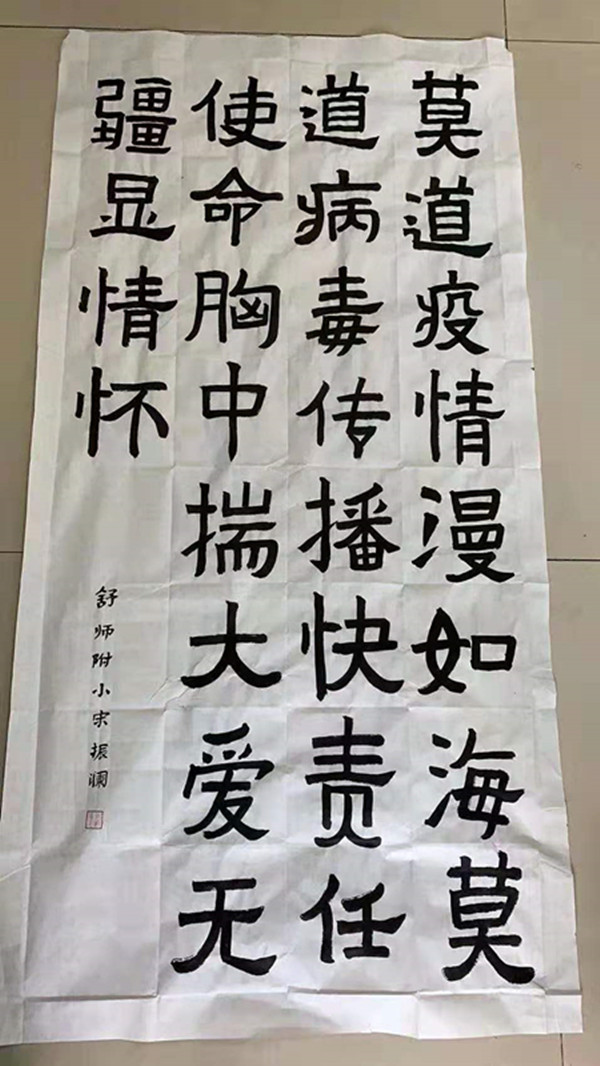 莫道疫情漫如海莫
道病毒传播快责任
使命胸中揣大爱无
疆显情怀
舒师附小宋振澜